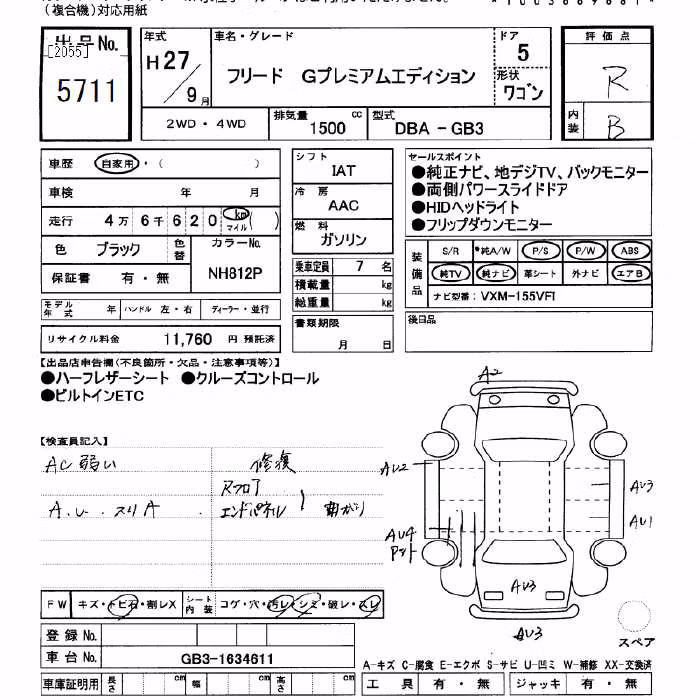 (複合機)対応用紙
出品No.
[2055]
5711
年式
H27/9月
車名・グレード
フリード Gプレミアムエディション
ドア
5
形状
ワゴン
2WD・4WD
排気量
1500 cc
型式
DBA-GB3
評価点
R
内装
B
車歴 自家用・( )
車検 年 月
走行 4万6千620 km マイル ( )
色 ブラック 色替
カラーNo.
NH812P
保証書 有・無
モデル年式 年 ハンドル 左・右 ディーラー・並行
リサイクル料金 11,760 円 預託済
シフト
IAT
冷房
AAC
燃料
ガソリン
乗車定員 7 名
積載量 kg
総重量 kg
書類期限
月 日
セールスポイント
●純正ナビ、地デジTV、バックモニター
●両側パワースライドドア
●HIDヘッドライト
●フリップダウンモニター
装備品
S/R 純A/W P/S P/W ABS
純TV 純ナビ 革シート 外ナビ エアB
ナビ型番: VXM-155VFI
後日品
【出品店申告欄(不良箇所・欠品・注意事項等)】
●ハーフレザーシート ●クルーズコントロール
●ビルトインETC
【検査員記入】
AC弱い
A.U.スリA
修復
Rフロア
エンドパネル
曲がり
A2
AU2
AU3
AU1
AU4
アット
AU3
AU3
スペア
FW キズ・トビ石・割レX
シート内装 コゲ・穴・汚レ・シミ・破レ・スレ
登録No.
車台No. GB3-1634611
車庫証明用 長さ cm 幅 cm 高さ cm
A-キズ C-腐食 E-エクボ S-サビ U-凹ミ W-補修 XX-交換済
工具 有・無 ジャッキ 有・無